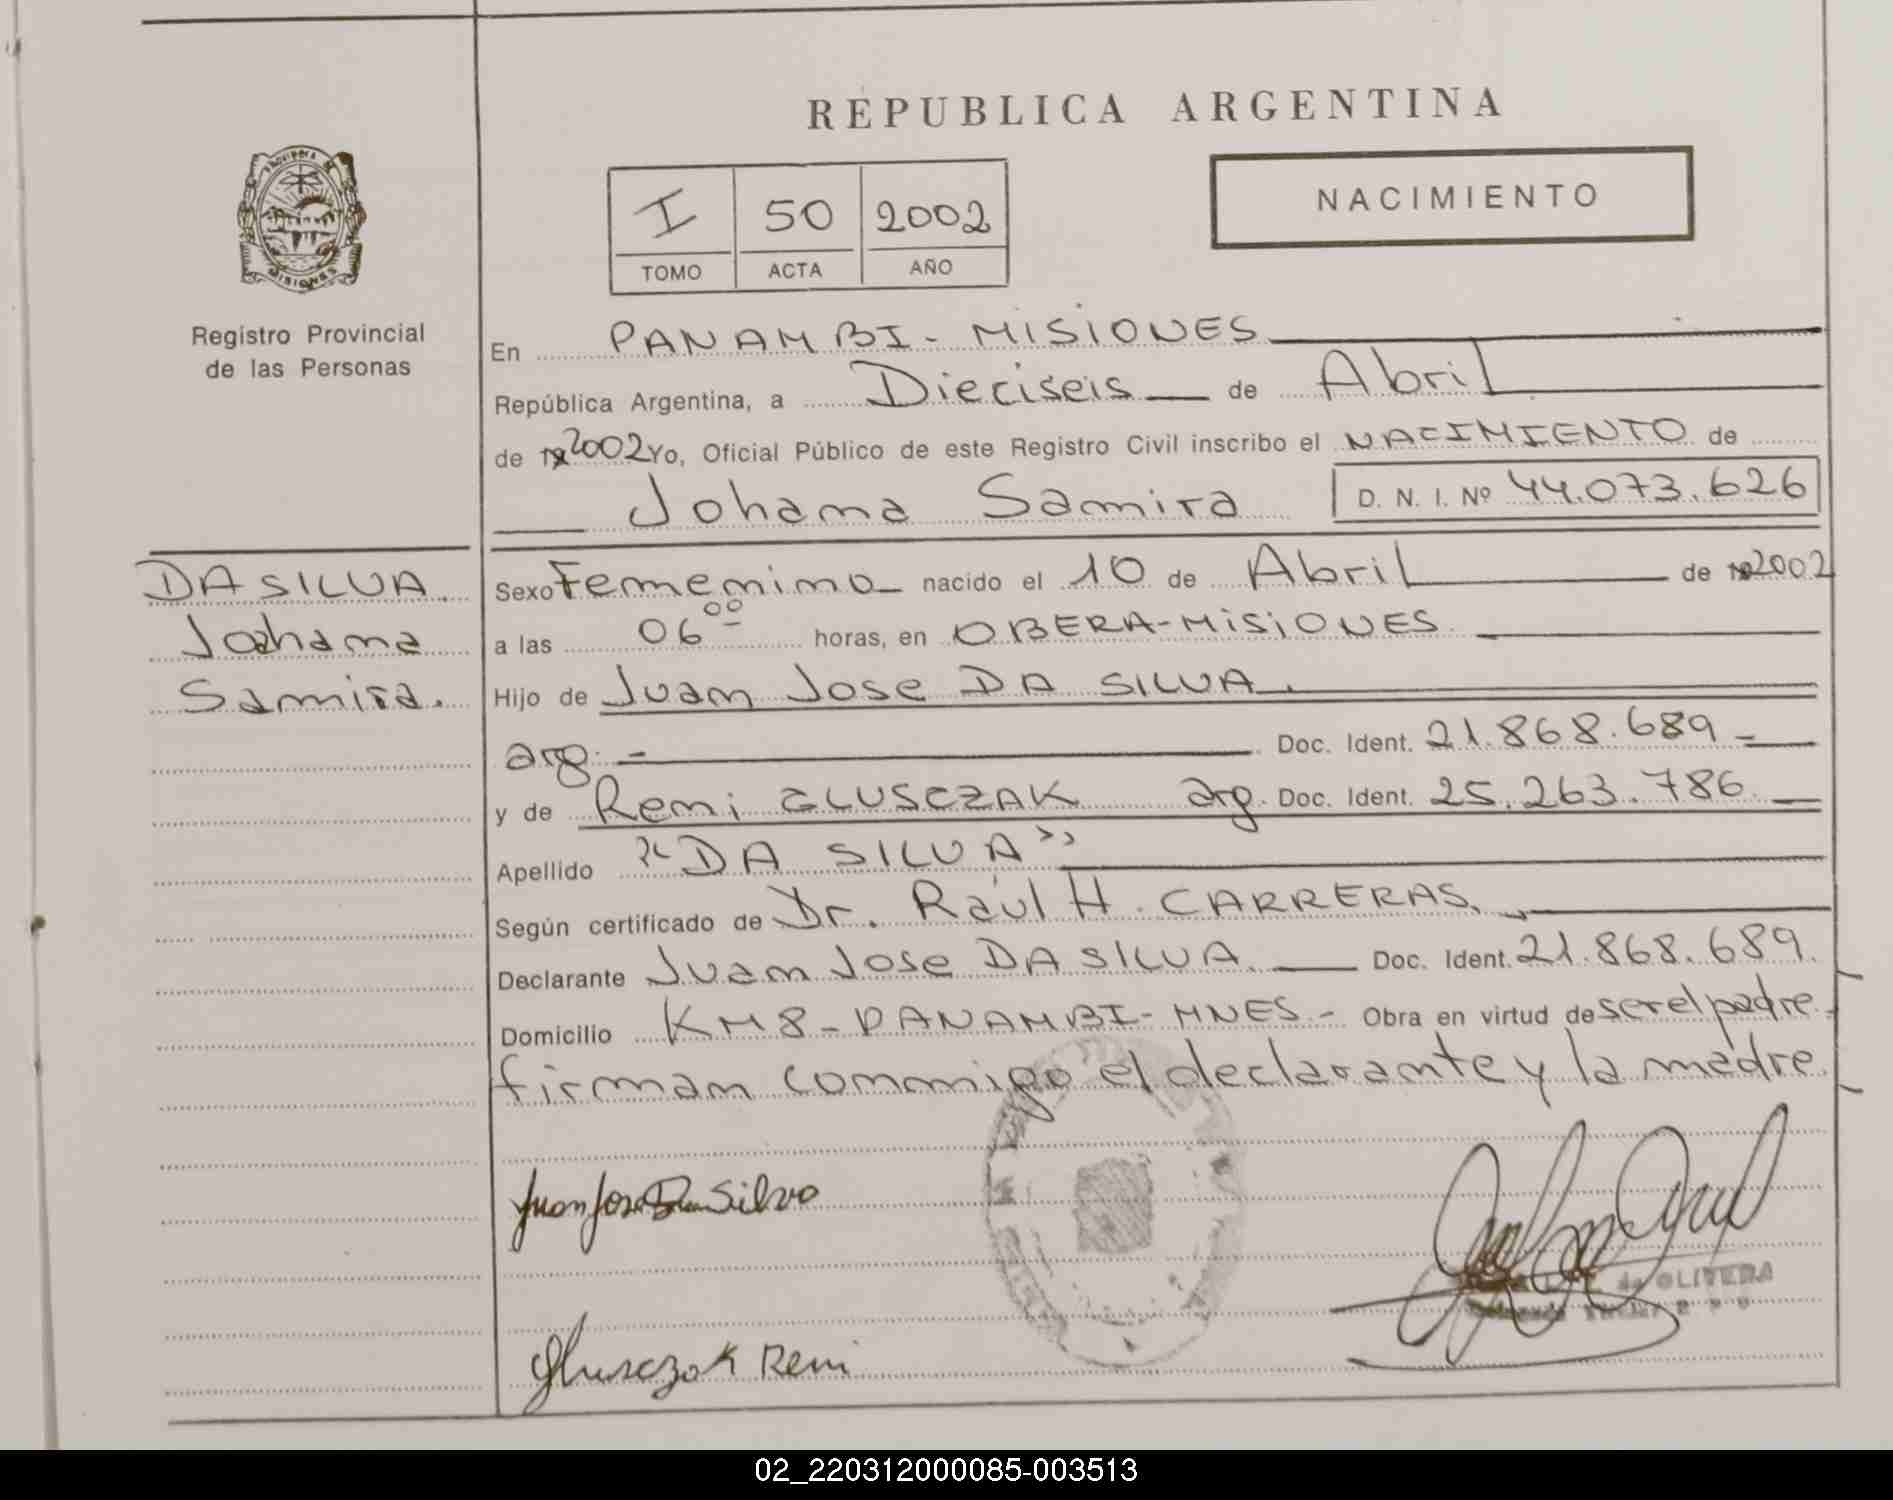 REPUBLICA ARGENTINA
PROVINCIA DE
MISIONES
Registro Provincial
de las Personas
I 50 2002
TOMO ACTA AÑO
NACIMIENTO
En PANAMBI - MISIONES
República Argentina, a Dieciseis de Abril
de 2002 Yo, Oficial Público de este Registro Civil inscribo el NACIMIENTO de
Johana Samira D. N. I. Nº 44.073.626
DA SILVA.
Johana
Samira.
Sexo Femenino nacido el 10 de Abril de 2002
a las 06 00 horas, en OBERA-MISIONES
Hijo de Juan Jose DA SILVA.
arg. - Doc. Ident. 21.868.689 -
y de Reni GLUSCZAK arg. Doc. Ident. 25.263.786
Apellido "DA SILVA"
Según certificado de Dr. Raúl H. CARRERAS.
Declarante Juan Jose DA SILVA. Doc. Ident. 21.868.689.
Domicilio KM 8 - PANAMBI - MNES. - Obra en virtud de ser el padre.
firman conmigo el declarante y la madre.
Juan Jose Da Silva
de OLIVERA
Glusczak Reni
02_220312000085-003513